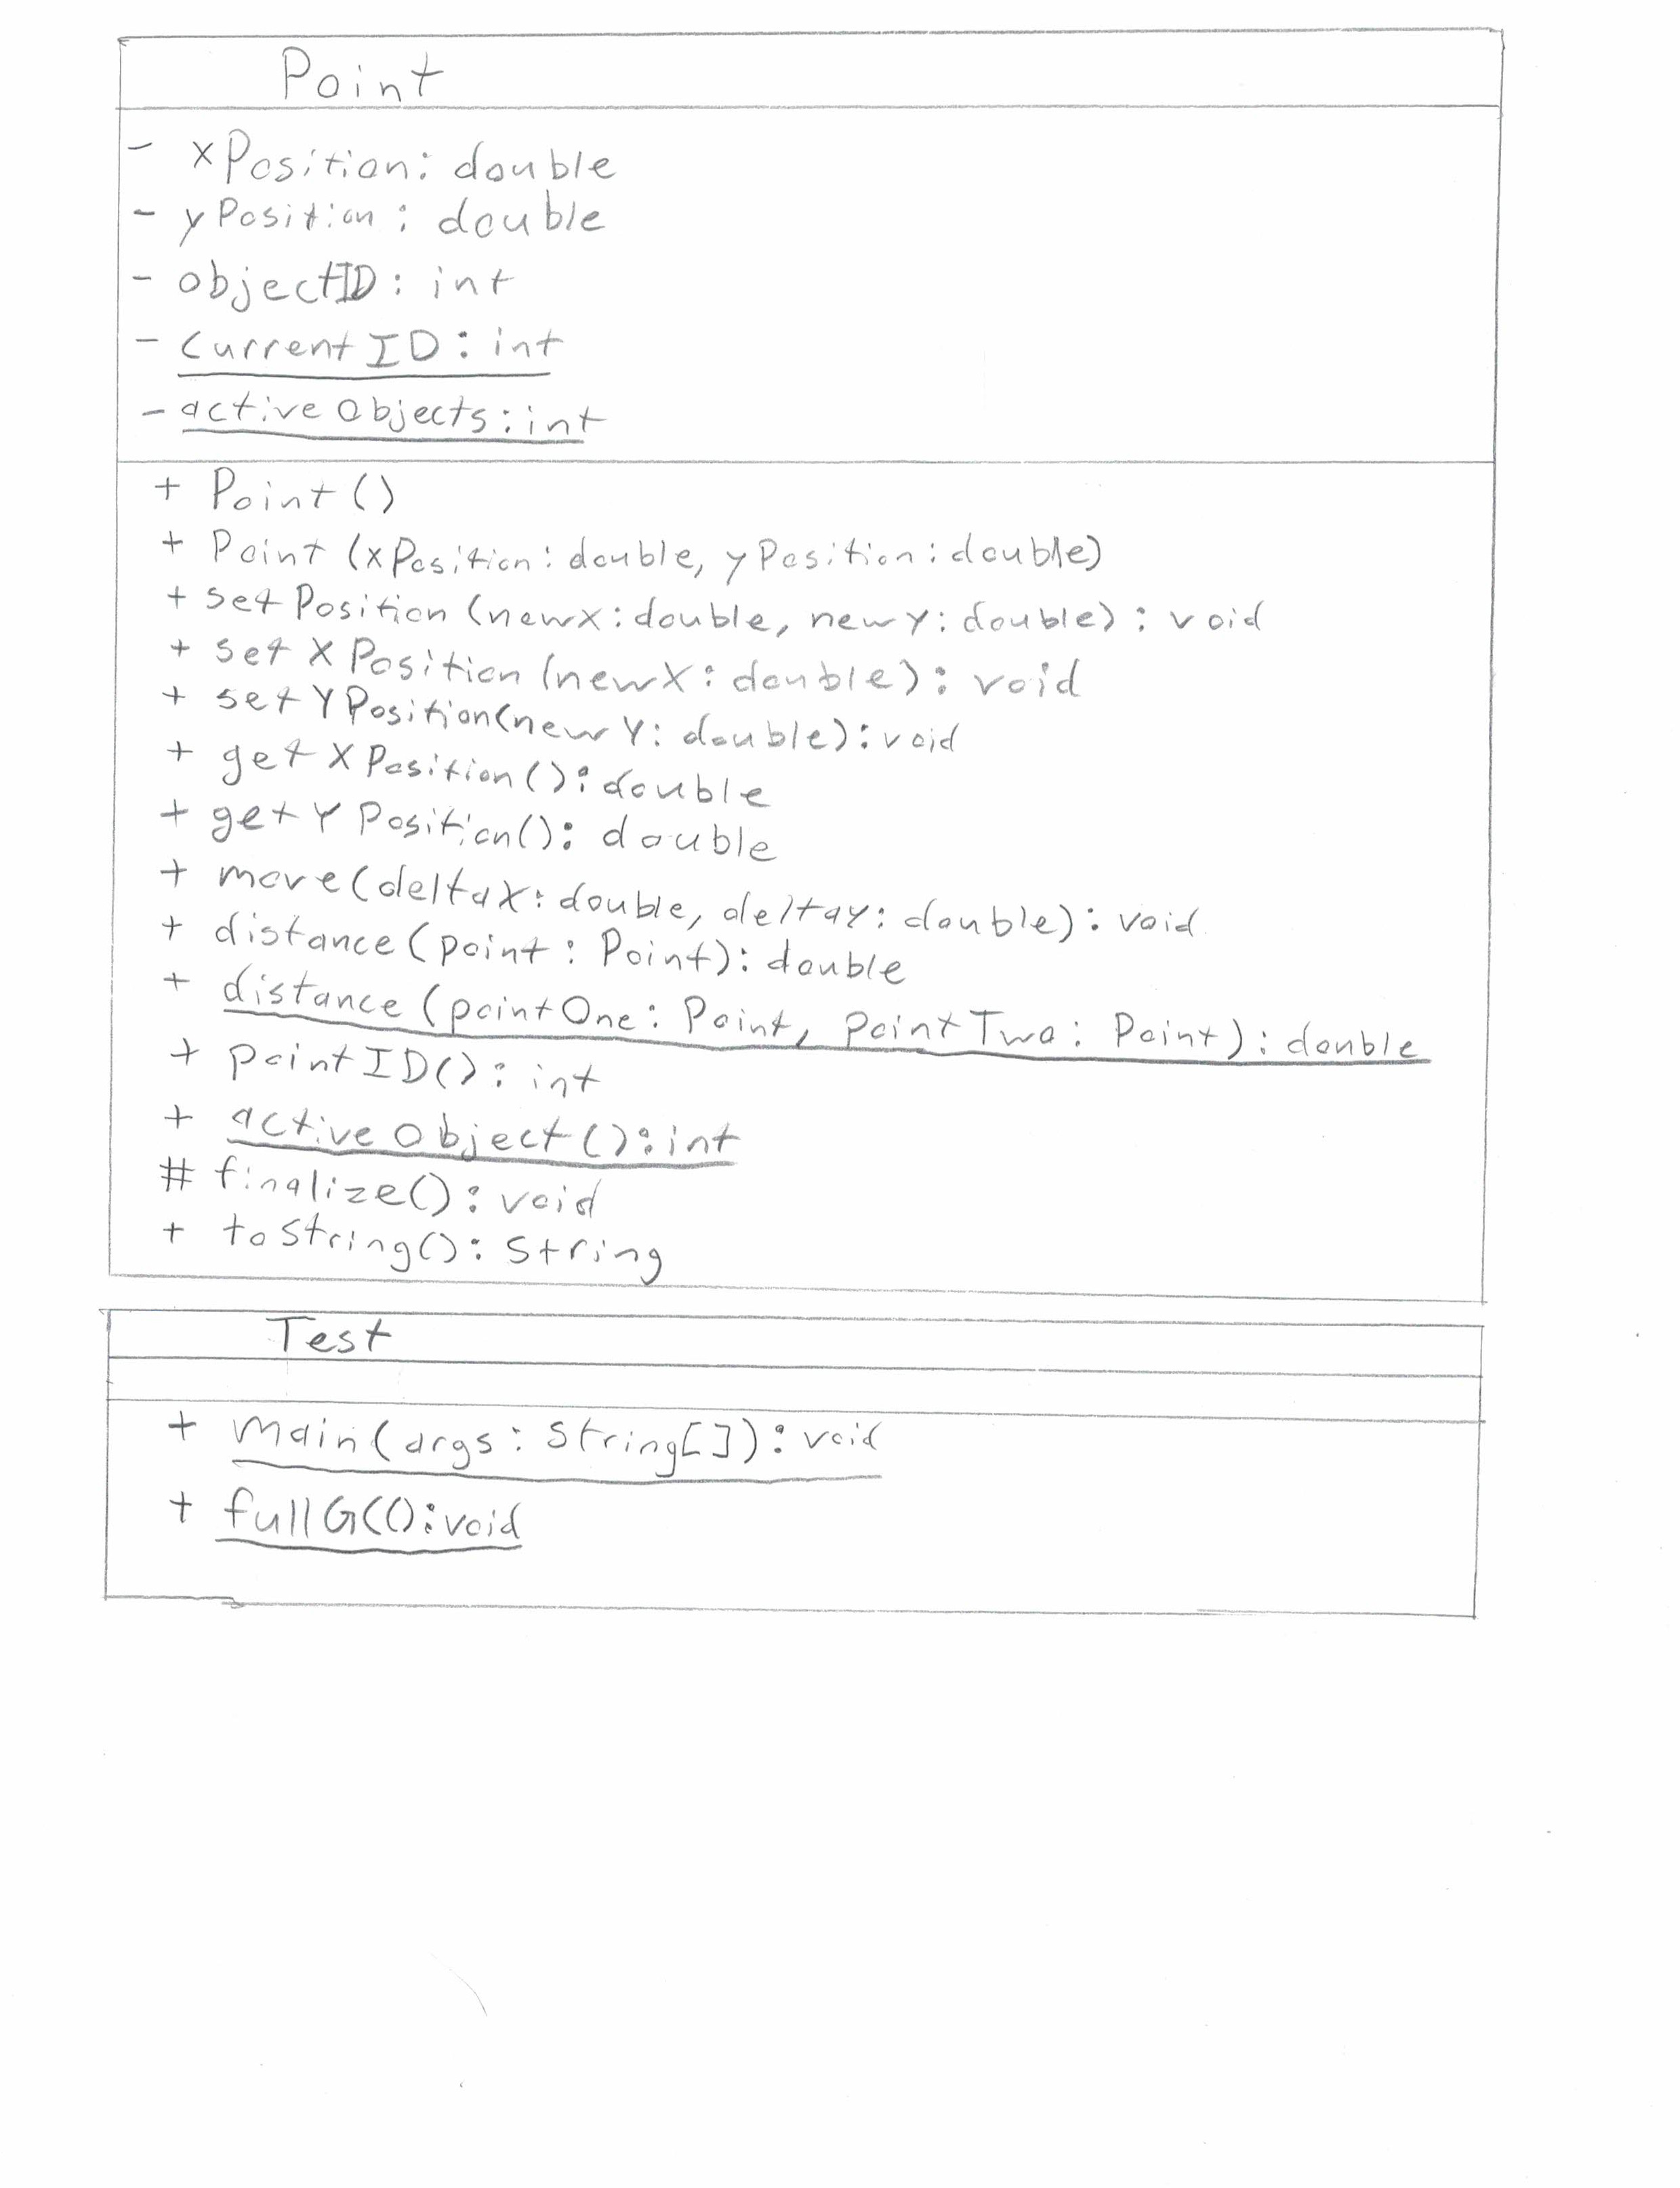 Point
- xPosition: double
- yPosition: double
- objectID: int
- currentID: int
- activeObjects: int
+ Point()
+ Point (xPosition: double, yPosition: double)
+ setPosition (newX: double, newY: double): void
+ setXPosition (newX: double): void
+ setYPosition(newY: double): void
+ getXPosition(): double
+ getYPosition(): double
+ move(deltaX: double, deltaY: double): void
+ distance (point: Point): double
+ distance (pointOne: Point, pointTwo: Point): double
+ pointID(): int
+ activeObject(): int
# finalize(): void
+ toString(): String
Test
+ main(args: String[]): void
+ fullGC(): void